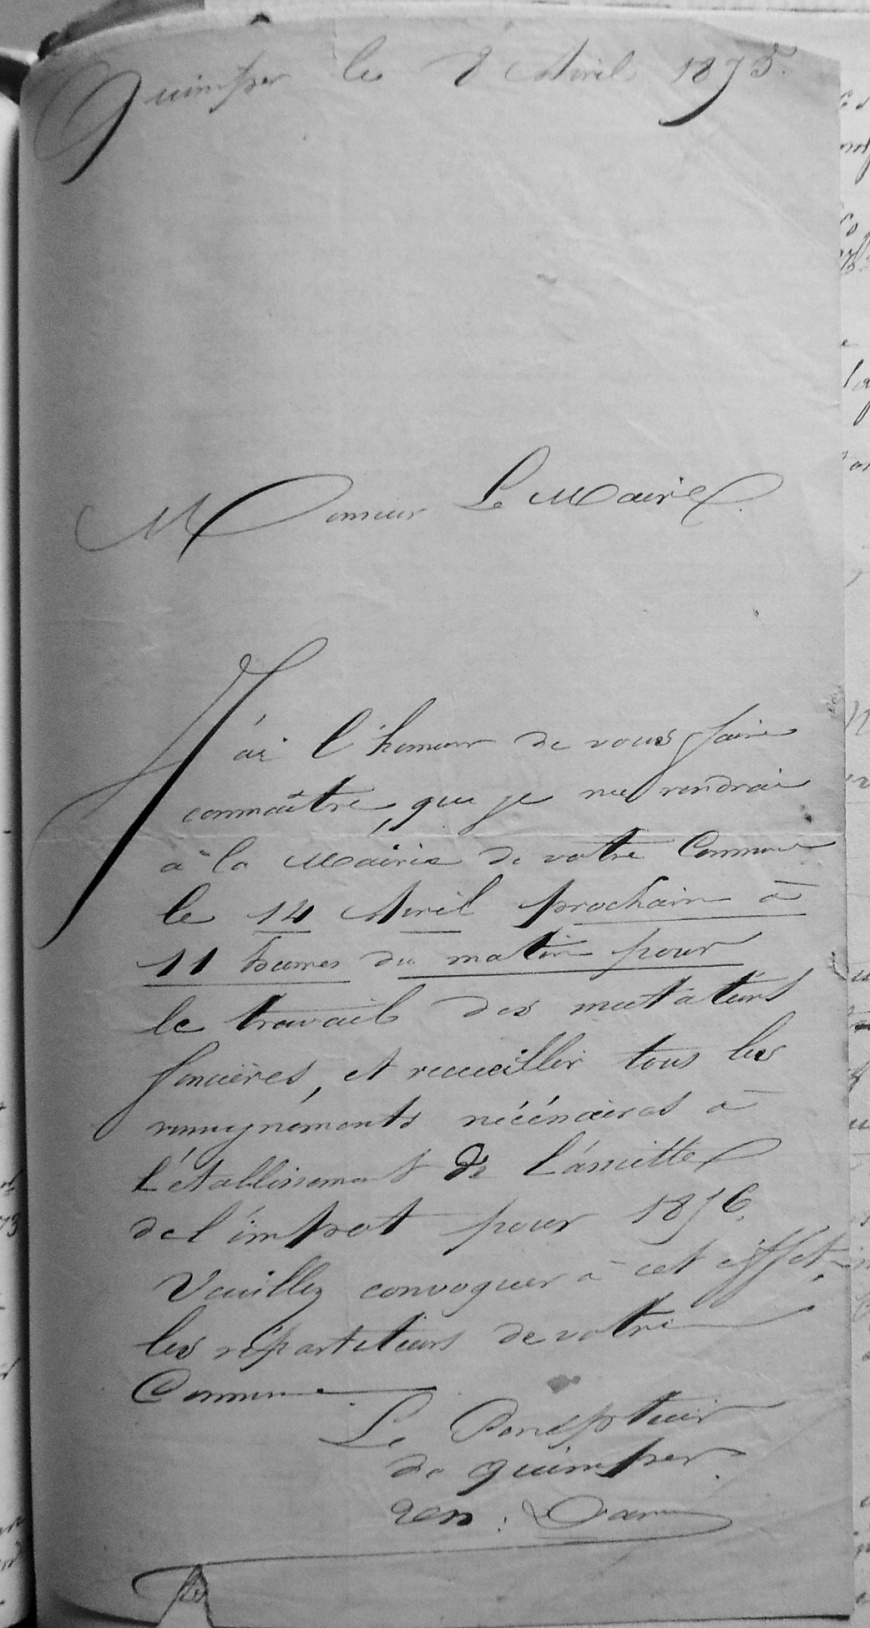 Quimper le 8 Avril 1875.
Monsieur Le Maire
J'ai l'honneur de vous faire
connaître, que je me rendrai
à la Mairie de votre Commune
le 14 Avril prochain à
11 heures du matin pour
le travail des mutateurs
foncières, et recueillir tous les
à
l'établissement de l'assiette
de l'impot pour 1876.
Veuillez convoquer à cet effet,
les répartiteurs de votre
Commune.
Le Percepteur
de quimper.